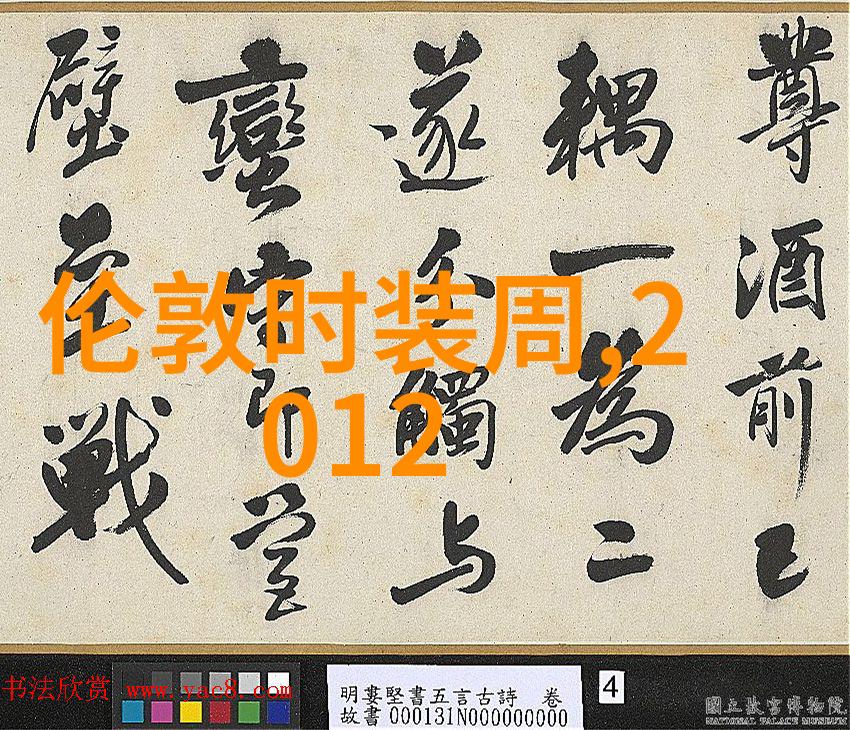 尊酒前已
耦一為二
遂觸与
蠻即營
壁戰
伦敦时装周,2
012
书法欣赏 www.yac8.com
明婁堅書五言古詩 卷
故書 000131N000000000
4
國立故宮博物院
NATIONAL PALACE MUSEUM